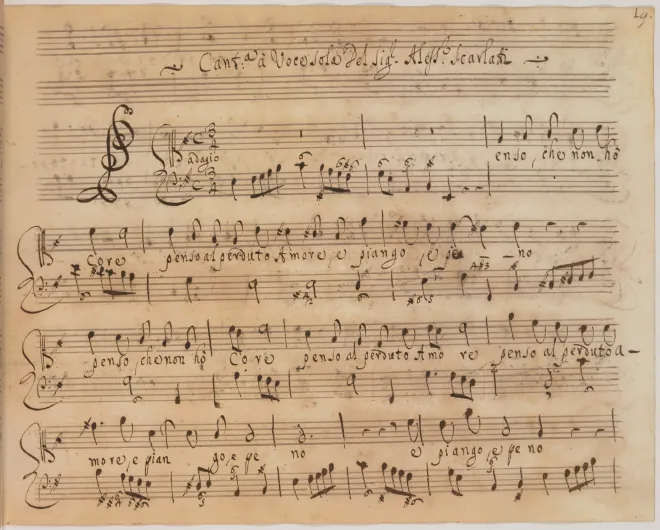 Cant:ª à Voce sola Del Sig.r Aless.o Scarlatti
adagio
enso, che non hò
Core penso al perduto Amore, e piango, e pe - no
penso, che non hò Core penso al perduto Amo re penso al perduto a -
more, e pian go, e pe no e piango, e pe no